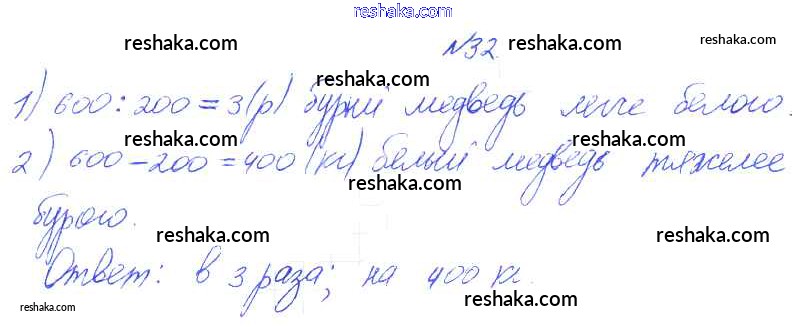 reshaka.com
reshaka.com № 32. reshaka.com
reshaka.com
1) 600 : 200 = 3 (р) бурый медведь легче белого.
reshaka.com reshaka.com
2) 600 - 200 = 400 (кг) белый медведь тяжелее
reshaka.com
бурого.
reshaka.com reshaka.com
Ответ: в 3 раза; на 400 кг.
reshaka.com reshaka.com